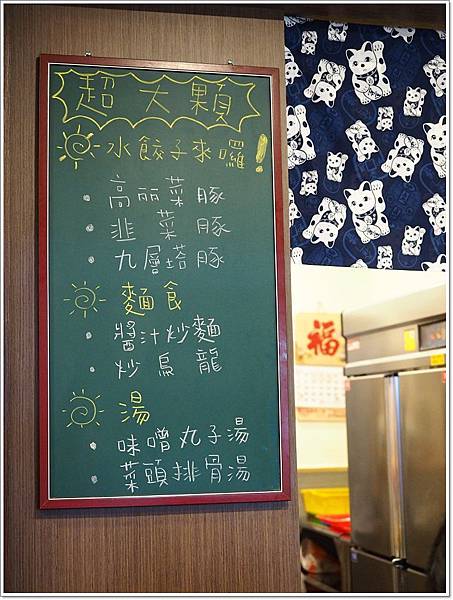 超大顆
水餃子來囉!
• 高丽菜豚
• 韭菜豚
• 九層塔豚
麵食
• 醬汁炒麵
• 炒烏龍
湯
• 味噌丸子湯
• 菜頭排骨湯
福